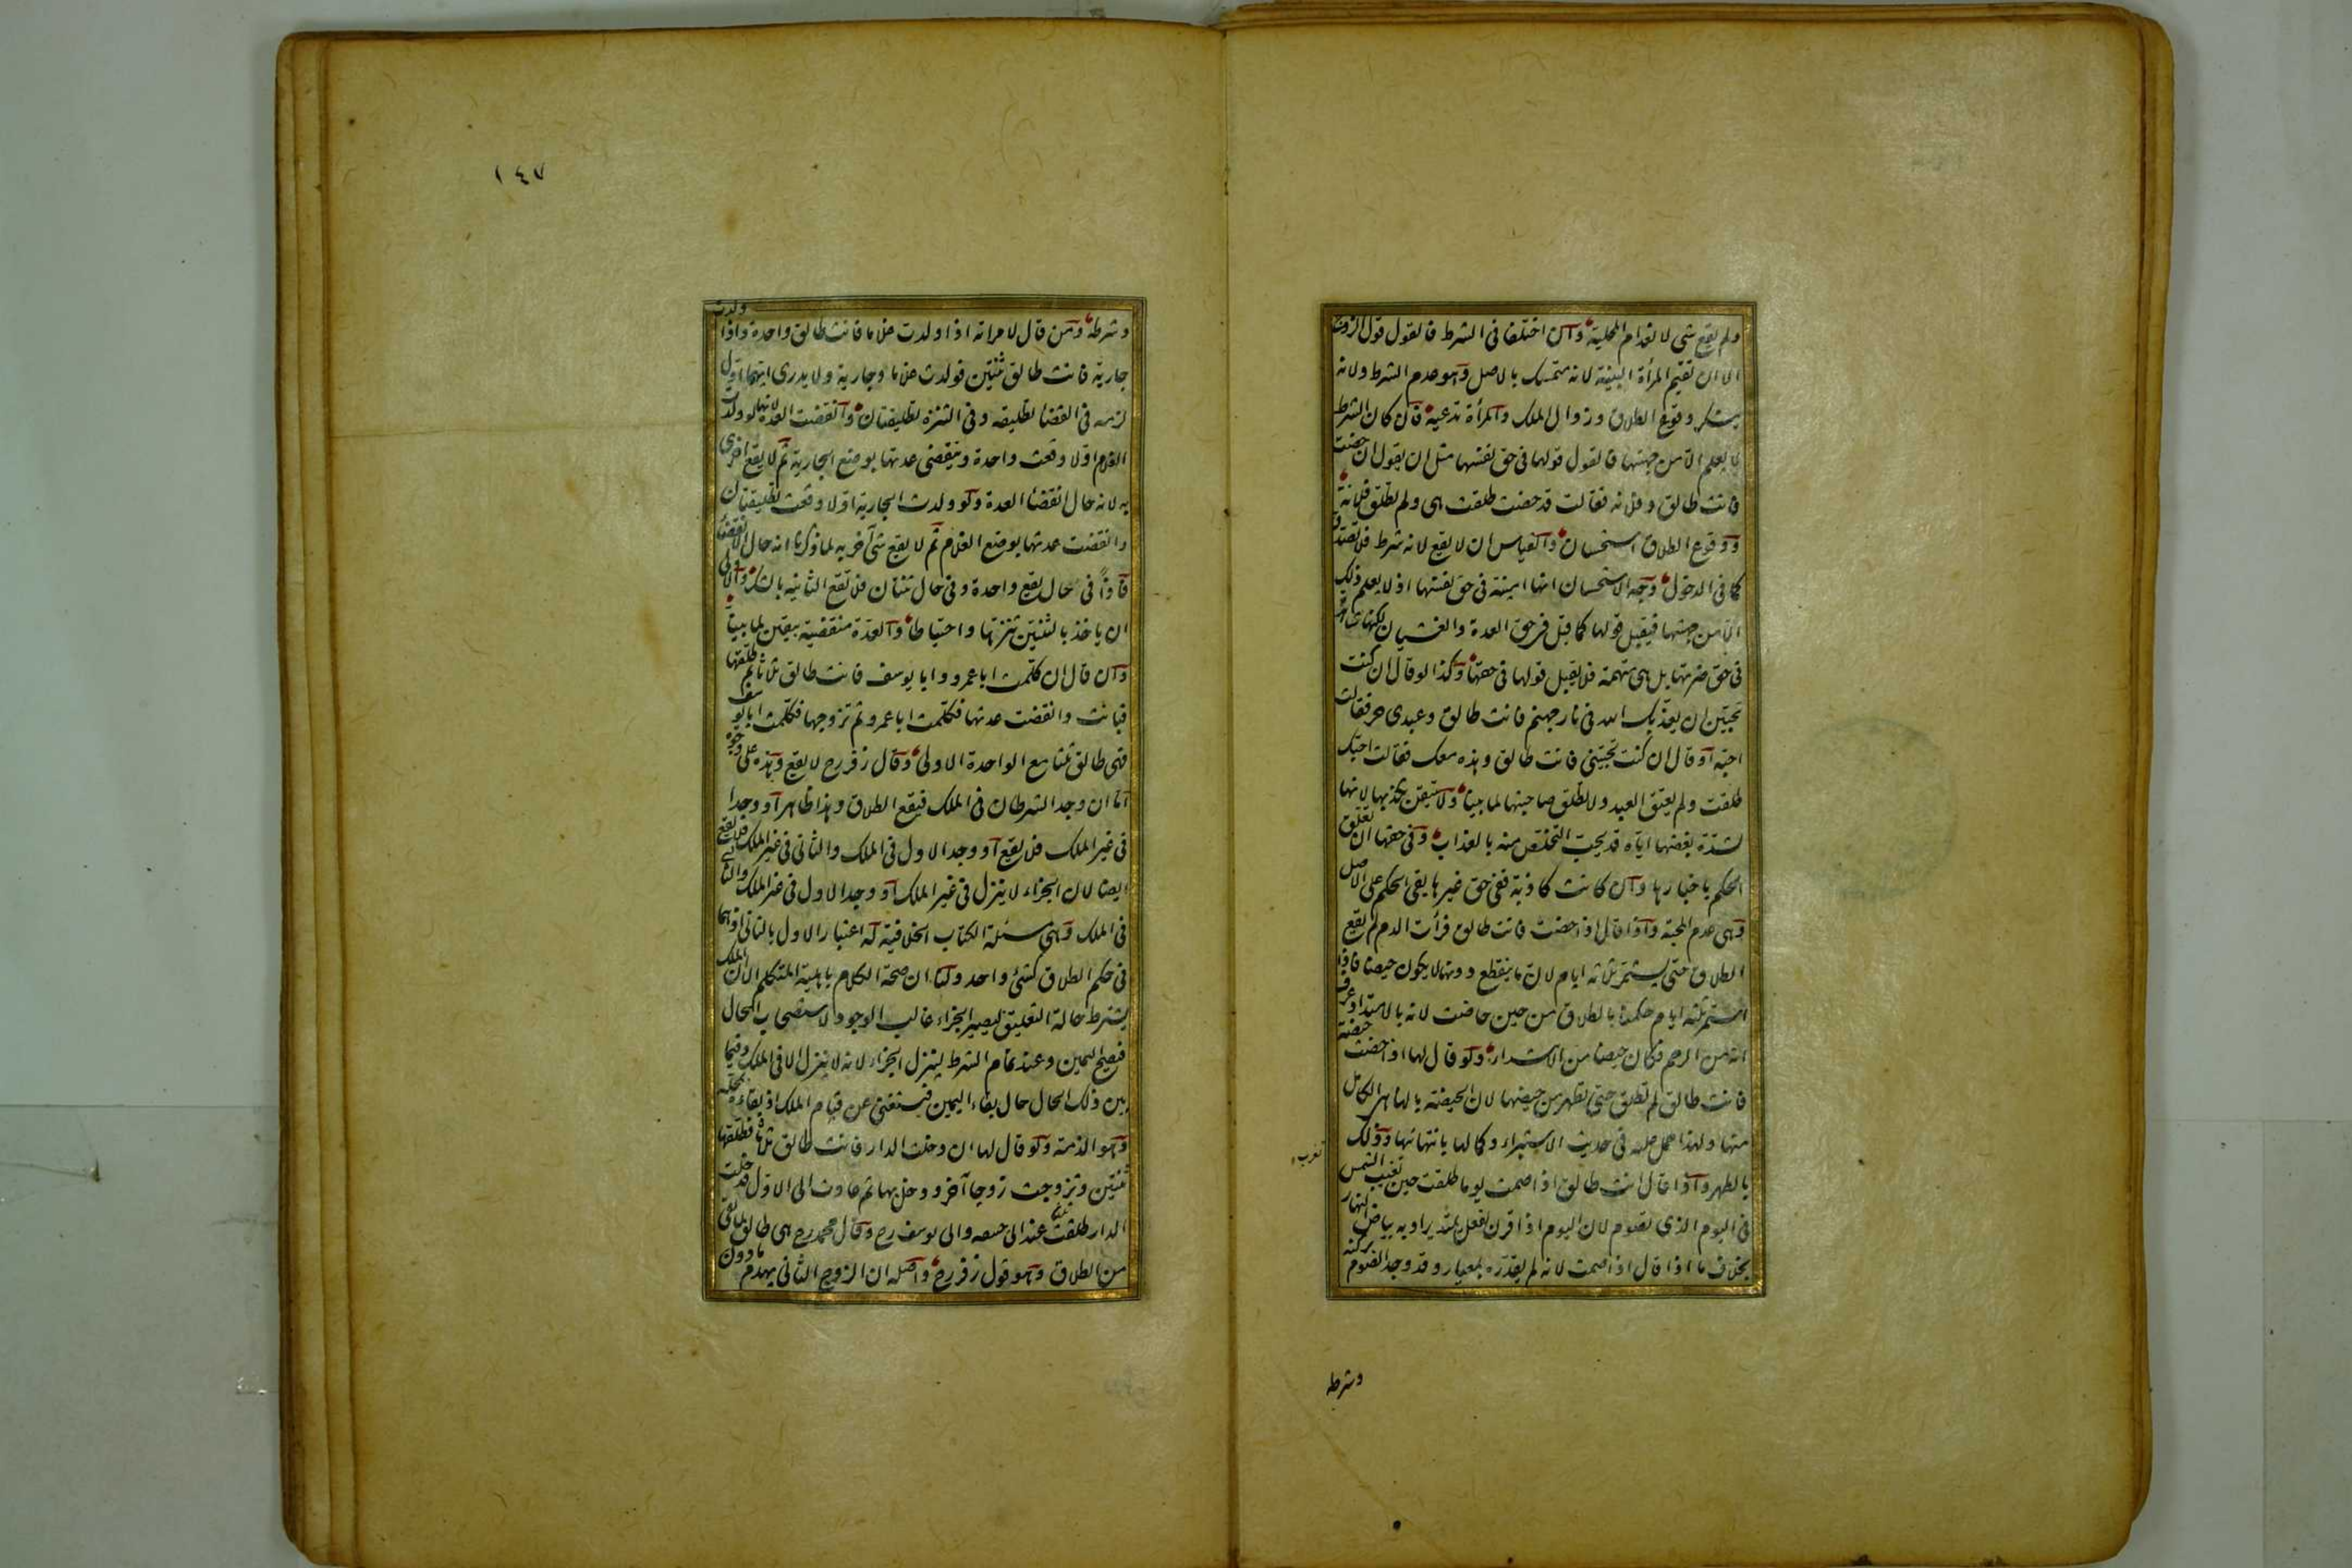 ولم يقع شى لانعدام المحلية وان اختلفا فى الشرط فالقول قول الزوج
الا ان تقيم المرأة البينة لانه متمسك بالاصل وهو عدم الشرط ولانه
ينكر وقوع الطلاق وزوال الملك والمرأة تدعيه فان كان الشرط
لا يعلم الا من جهتها فالقول قولها فى حق نفسها مثل ان يقول ان حضت
فانت طالق وفلانة فقالت قد حضت طلقت هى ولم تطلق فلانة
ووقوع الطلاق استحسان والقياس ان لا يقع لانه شرط فلا تصدق
كما فى الدخول وجه الاستحسان انها امينة فى حق نفسها اذ لا يعلم ذلك
الا من جهتها فيقبل قولها كما قبل فى حق العدة والغشيان لكنها شاهدة
فى حق ضرتها بل هى متهمة فلا يقبل قولها فى حقها وكذا لو قال ان كنت
تحبين ان يعذبك الله فى نار جهنم فانت طالق وعبدى حر فقالت
احبه او قال ان كنت تحبينى فانت طالق وهذه معك فقالت احبك
طلقت ولم يعتق العبد ولا تطلق صاحبتها لما بينا ولا نتيقن بكذبها لانها
لشدة بغضها اياه قد تحب التخلص منه بالعذاب وفى حقها ان تعلق
الحكم باخبارها وان كانت كاذبة ففى حق غيرها بقى الحكم على الاصل
وهى عدم المحبة واذا قال اذا حضت فانت طالق فرأت الدم لم يقع
الطلاق حتى يستمر ثلاثة ايام لان ما ينقطع دونها لا يكون حيضا فاذا
استمر ثلثة ايام حكمنا بالطلاق من حين حاضت لانه بالامتداد عرف
انه من الرحم فكان حيضا من الابتداء ولو قال لها اذا حضت حيضة
فانت طالق لم تطلق حتى تطهر من حيضها لان الحيضة بالهاء هى الكامل
منها ولهذا حمل عليه فى حديث الاستبراء وكمالها بانتهائها وذلك
بالطهر واذا قال انت طالق اذا صمت يوما طلقت حين تغيب الشمس
تغرب
فى اليوم الذى تصوم لان اليوم اذا قرن بفعل ممتد يراد به بياض النهار
بخلاف ما اذا قال اذا صمت لانه لم يقدره بمعيار وقد وجد الصوم بركنه
وشرطه
١٤٧
وشرطه ومن قال لامراته اذا ولدت غلاما فانت طالق واحدة واذا ولدت
جارية فانت طالق ثنتين فولدت غلاما وجارية ولا يدرى ايهما اول
لزمه فى القضا تطليقه وفى التنزه تطليقتان وانقضت العدة لانها لو ولدت
الغلام اولا وقعت واحدة وتنقضى عدتها بوضع الجارية ثم لا يقع اخرى
به لانه حال انقضا العدة ولو ولدت الجارية اولا وقعت تطليقتان
وانقضت عدتها بوضع الغلام ثم لا يقع شى آخر به لما ذكرنا انه حال الانقضاء
فاذا فى حال يقع واحدة وفى حال ثنتان فلا تقع الثانيه بالشك والاولى
ان ياخذ بالثنتين تنزها واحتياطا والعدة منقضية بيقين لما بينا
وان قال ان كلمت ابا عمرو وابا يوسف فانت طالق ثلاثا ثم طلقها
فبانت وانقضت عدتها فكلمت ابا عمرو ثم تزوجها فكلمت ابا يوسف
فهى طالق ثلثا مع الواحدة الاولى وقال زفر رح لا يقع وهذه على وجوه
اما ان وجد الشرطان فى الملك فيقع الطلاق وهذا ظاهر او وجدا
فى غير الملك فلا يقع او وجد الاول فى الملك والثانى فى غير الملك فلا يقع
ايضا لان الجزاء لا ينزل فى غير الملك او وجد الاول فى غير الملك والثانى
فى الملك وهى مسئلة الكتاب الخلافية له اعتبار الاول بالثانى اذ هما
فى حكم الطلاق كشئ واحد ولنا ان صحة الكلام باهلية المتكلم الا ان الملك
يشترط حالة التعليق ليصير الجزاء غالب الوجود لاستصحاب الحال
فيصح اليمين وعند تمام الشرط لينزل الجزاء لانه لا ينزل الا فى الملك وفيما
بين ذلك الحال حال بقاء اليمين فيستغنى عن قيام الملك اذ بقاءه بمحله
وهو الذمة ولو قال لها ان دخلت الدار فانت طالق ثلاثا فطلقها
ثنتين وتزوجت زوجا آخر ودخل بها ثم عادت الى الاول فدخلت
الدار طلقت ثلثا عند ابى حنيفه وابى يوسف رح وقال محمد رح هى طالق ما بقى
من الطلاق وهو قول زفر رح واصله ان الزوج الثانى يهدم ما دون